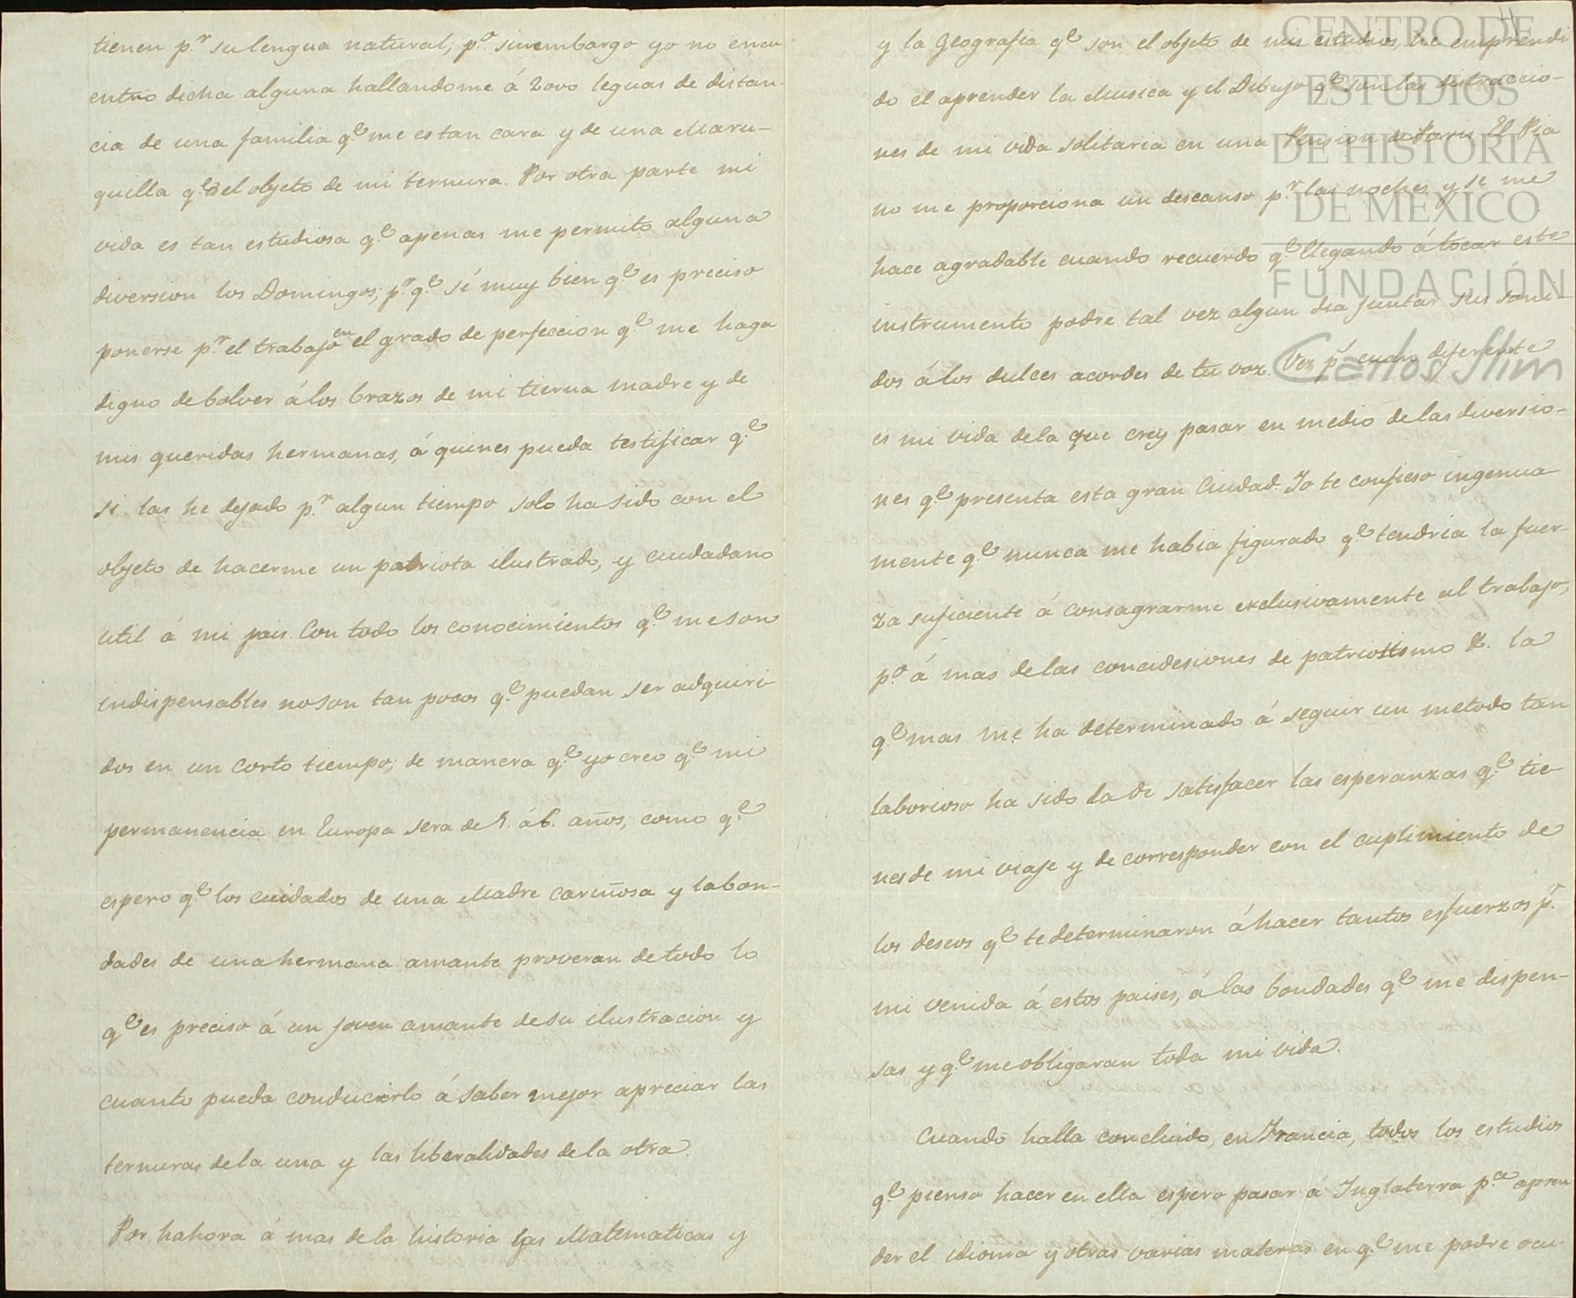 tienen p.r su lengua natural; p.o sinembargo yo no encu
entro dicha alguna hallandome á 2000 leguas de distan-
cia de una familia q.e me es tan cara y de una Maru-
quilla q.e es el objeto de mi ternura. Por otra parte mi
vida es tan estudiosa q.e apenas me permito alguna
diversion los Domingos; p.r q.e sé muy bien q.e es preciso
ponerse p.r el trabajo en el grado de perfeccion q.e me haga
digno de bolver á los brazos de mi tierna madre y de
mis queridas hermanas, á quines pueda testificar q.e
si las he dejado p.r algun tiempo solo ha sido con el
objeto de hacerme un patriota ilustrado, y cuidadano
util á mi pais. Con todo los conocimientos q.e me son
indispensables no son tan pocos q.e puedan ser adquiri-
dos en un corto tiempo; de manera q.e yo creo q.e mi
permanencia en Europa sera de 5. á 6. años, como q.e
espero q.e los cuidados de una Madre cariñosa y la bon-
dades de una hermana amante proveran de todo lo
q.e es preciso á un joven amante de su ilustracion y
cuanto pueda conducirlo á saber mejor apreciar las
ternuras de la una y las liberalidades de la otra.
Por hahora á mas de la historia las Matematicas y
y la Geografia q.e son el objeto de mis estudios, he emprendi
do el aprender la Musica y el Dibujo q.e son las distraccio-
nes de mi vida solitaria en una Pension de Paris. El Pia
no me proporciona un descanso p.r las noches y se me
hace agradable cuando recuerdo q.e llegando á tocar este
instrumento podre tal vez algun dia juntar sus soni-
dos á los dulces acordes de tu voz. Vez p.s cuan diferente
es mi vida de la que crey pasar en medio de las diversio-
nes q.e presenta esta gran Ciudad. Yo te confieso ingenua
mente q.e nunca me habia figurado q.e tendria la fuer-
za suficiente á consagrarme exclusivamente al trabajo,
p.o á mas de las concidesiones de patriotismo &. la
q.e mas me ha determinado á seguir un metodo tan
laborioso ha sido la de satisfacer las esperanzas q.e tie
nes de mi viaje y de corresponder con el cuplimiento de
los deseos q.e te determinaron á hacer tantos esfuerzos p.r
mi venida á estos paises, á las bondades q.e me dispen-
sas y q.e me obligaran toda mi vida.
Cuando halla concluido, en Francia, todos los estudios
q.e pienso hacer en ella espero pasar á Inglaterra p.a apren
der el idioma y otras varias materias en q.e me podre ocu-
CENTRO DE
ESTUDIOS
DE HISTORIA
DE MEXICO
FUNDACIÓN
Carlos Slim